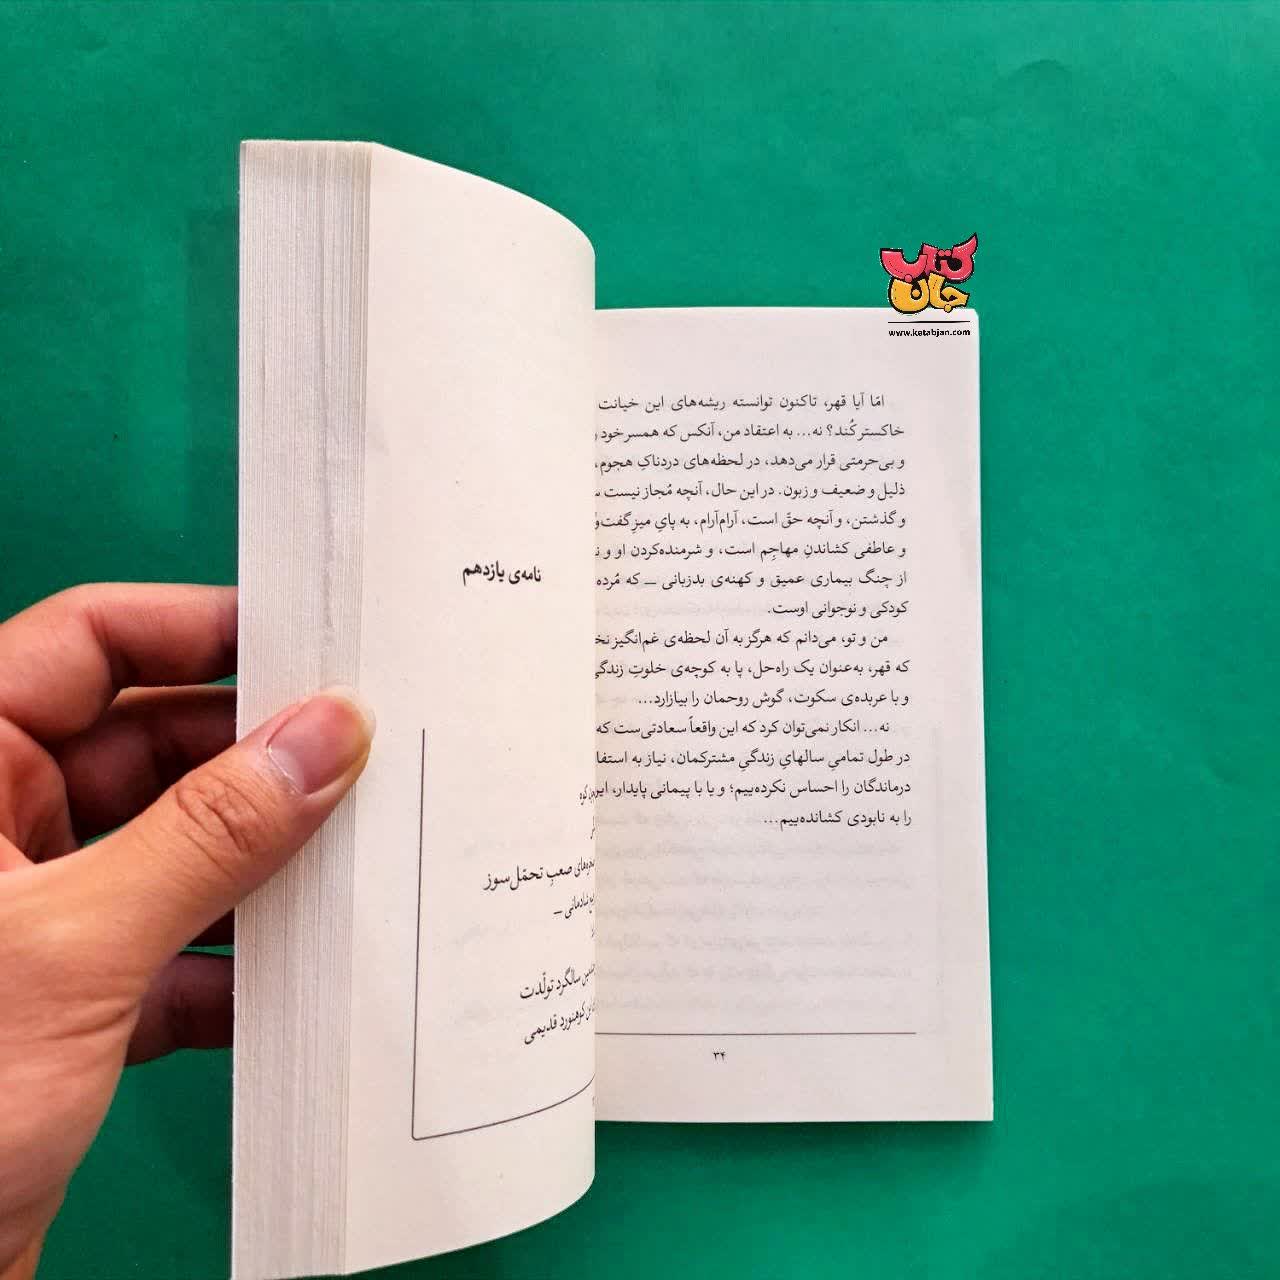 کتاب
جان
www.ketabjan.com
امّا آیا قهر، تاکنون توانسته ریشه‌های این خیانت
خاکستر کُند؟ نه... به اعتقاد من، آنکس که همسر خود
و بی‌حرمتی قرار می‌دهد، در لحظه‌های دردناکِ هجوم،
ذلیل و ضعیف و زبون. در این حال، آنچه مُجاز نیست
و گذشتن، و آنچه حقّ است، آرام‌آرام، به پایِ میزِ
و عاطفی کشاندنِ مهاجِم است، و شرمنده‌کردن او و
از چنگ بیماری عمیق و کهنه‌ی بدزبانی — که مُرده
کودکی و نوجوانی اوست.
من و تو، می‌دانم که هرگز به آن لحظه‌ی غم‌انگیز
که قهر، به‌عنوان یک راه‌حل، پا به کوچه‌ی خلوتِ زندگی
و با عربده‌ی سکوت، گوش روحمان را بیازارد...
نه... انکار نمی‌توان کرد که این واقعاً سعادتی‌ست که
در طول تمامیِ سالهایِ زندگیِ مشترکمان، نیاز به
درماندگان را احساس نکرده‌ییم؛ و یا با پیمانی پایدار،
را به نابودی کشانده‌ییم...
۳۴
نامه‌ی یازدهم
کوه
صعبِ تحمّل‌سوز
شادمانی —
سالگرد تولّدت
کوهنورد قدیمی